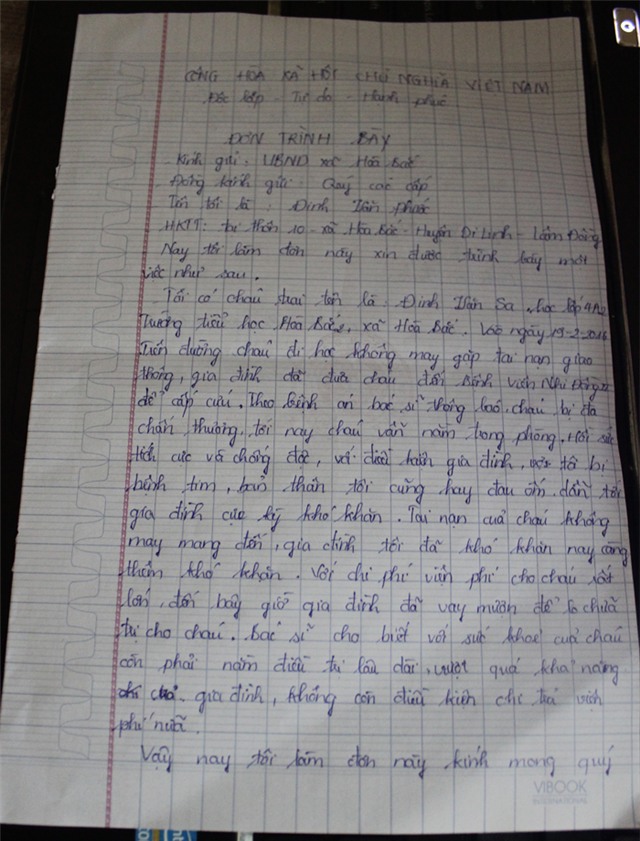 CỘNG HOÀ XÃ HỘI CHỦ NGHĨA VIỆT NAM
Độc lập - Tự do - Hạnh phúc
ĐƠN TRÌNH BÀY
Kính gửi. UBND xã Hoà Bắc
Đồng kính gửi: Quý các cấp
Tên tôi là: Đinh Văn Phước
HKTT: tại thôn 10 - xã Hoà Bắc - Huyện Di Linh - Lâm Đồng
Nay tôi làm đơn này xin được trình bày một
việc như sau.
Tôi có cháu trai tên là Đinh Văn Sa, học lớp 4
Trường tiểu học Hoà Bắc, xã Hoà Bắc. Vào ngày 19-2-2016
Trên đường cháu đi học không may gặp tai nạn giao
thông, gia đình đã đưa cháu đến Bệnh viện Nhi Đồng 2
để cấp cứu. Theo bệnh án bác sĩ thông báo, cháu bị đa
chấn thương. tới nay cháu vẫn nằm trong phòng. Hồi sức
tích cực và chống độc, với điều kiện gia đình, vợ tôi bị
bệnh tim, bản thân tôi cũng hay đau ốm. dẫn tới
gia đình cực kỳ khó khăn. Tai nạn của cháu không
may mang đến, gia đình tôi đã khó khăn nay càng
thêm khó khăn. Với chi phí viện phí cho cháu rất
lớn, đến bây giờ gia đình đã vay mượn để lo chữa
trị cho cháu. Bác sĩ cho biết với sức khoẻ của cháu
còn phải nằm điều trị lâu dài, vượt quá khả năng
của gia đình, không còn điều kiện chi trả viện
phí nữa.
Vậy nay tôi làm đơn này kính mong quý
VIBOOK
INTERNATIONAL